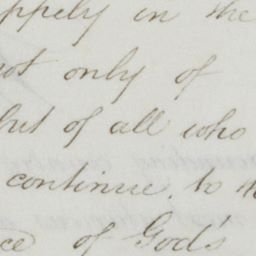 in the
not only of
but of all who
continue to
of God's